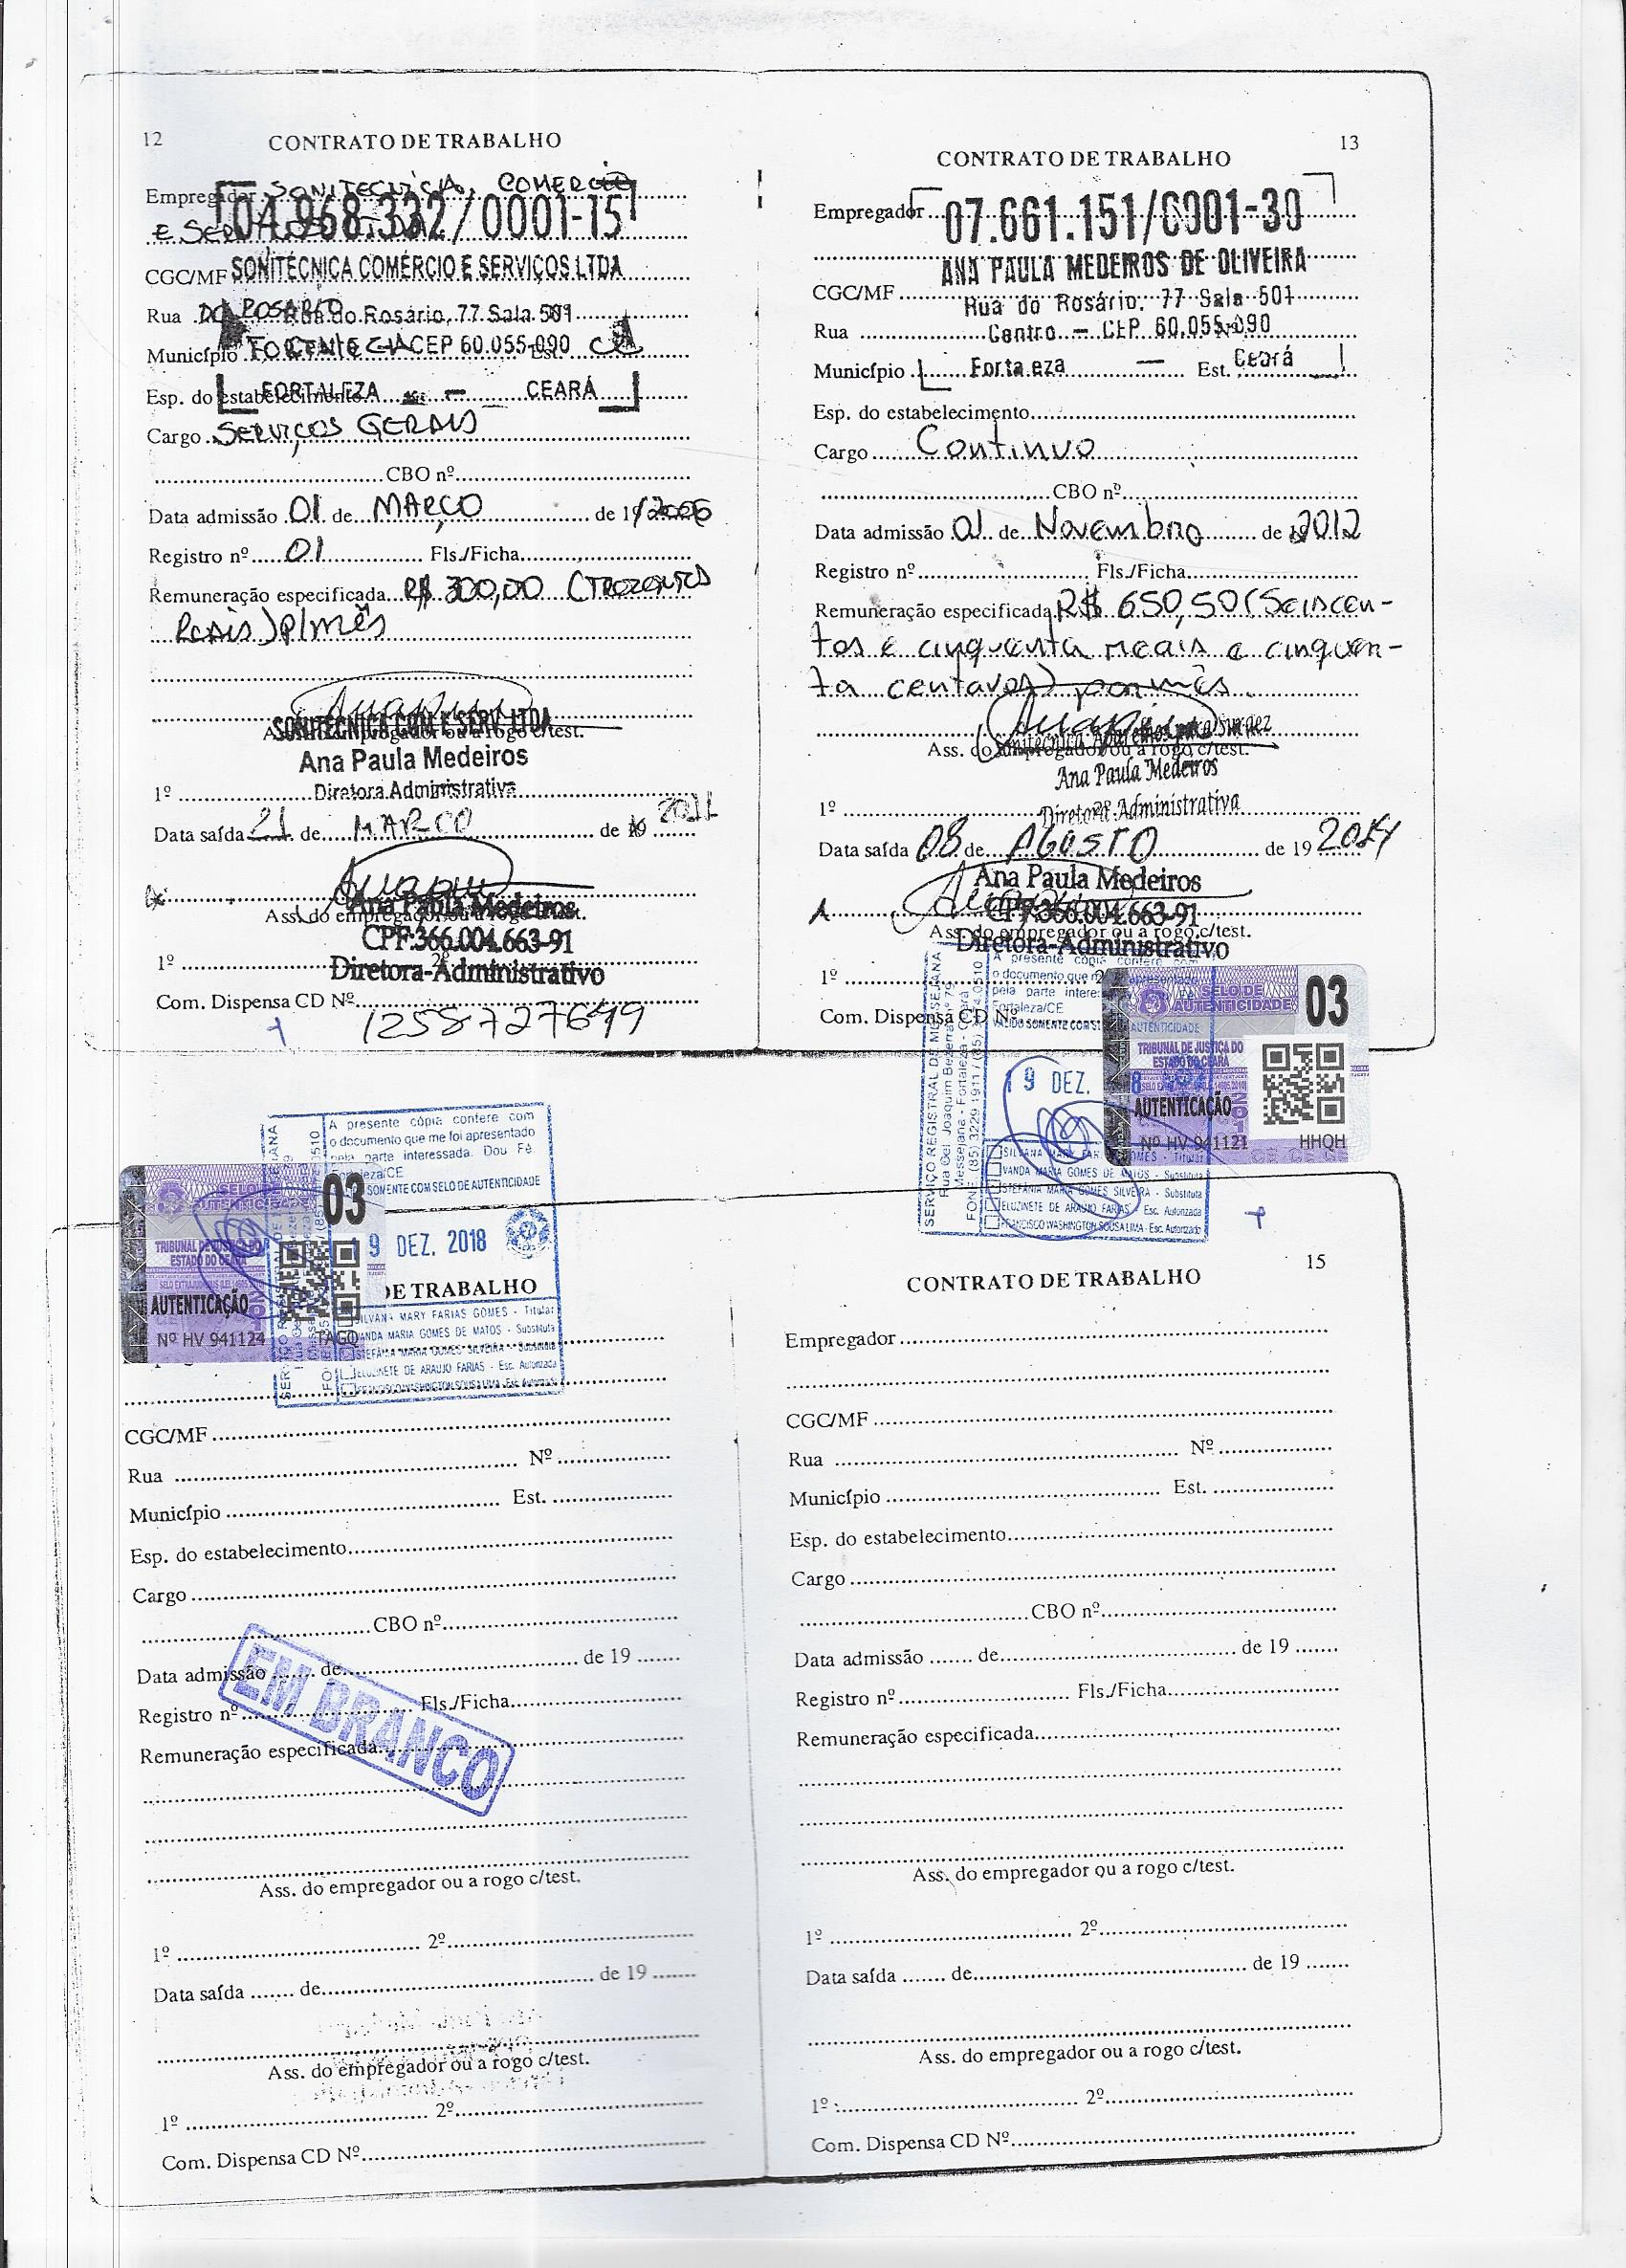 12
CONTRATO DE TRABALHO
Empregador SONITECNICA, COMERCIO
04.968.332/0001-15
E SERVIÇOS LTDA
CGC/MF SONITÉCNICA COMÉRCIO E SERVIÇOS LTDA
Rua DO ROSARIO Rua do Rosário, 77 Sala 501
Município FORTALEZA CENTRO CEP 60.055-090 CE
Esp. do estabelecimento FORTALEZA - CEARÁ
Cargo SERVIÇOS GERAIS
CBO nº
Data admissão 01 de MARÇO de 19 2006
Registro nº 01 Fls./Ficha
Remuneração especificada R$ 300,00 (TREZENTOS
REAIS) P/MÊS
SONITÉCNICA COM. E SERV. LTDA
Ass. do empregador ou a rogo c/test.
Ana Paula Medeiros
1º Diretora Administrativa
Data saída 21 de MARCO de 19 2011
Ana Paula Medeiros
Ass. do empregador ou a rogo c/test.
CPF:366.004.663-91
1º 2º
Diretora-Administrativo
Com. Dispensa CD Nº
1258727649
13
CONTRATO DE TRABALHO
Empregador 07.661.151/0001-30
ANA PAULA MEDEIROS DE OLIVEIRA
CGC/MF
Rua do Rosário, 77 Sala 501
Rua Centro - CEP 60.055-090
Município Fortaleza — Est. Ceará
Esp. do estabelecimento
Cargo Contínuo
CBO nº
Data admissão 01 de Novembro de 2012
Registro nº Fls./Ficha
Remuneração especificada R$ 650,50 (Seiscen-
tos e cinquenta reais e cinquen-
ta centavos) por mês
Sonitécnica Aparelhos para Surdez
Ass. do empregador ou a rogo c/test.
Ana Paula Medeiros
1º Diretora Administrativa
Data saída 08 de AGOSTO de 19 2014
Ana Paula Medeiros
CPF:366.004.663-91
Ass. do empregador ou a rogo c/test.
Diretora-Administrativo
1º 2
Com. Dispensa CD Nº
A presente cópia confere com
o documento que me apresentado
pela parte interes
Fortaleza/CE
VÁLIDO SOMENTE COM S AUTENTICIDADE
SERVIÇO REGISTRAL DE MESSEJANA
Rua Cel. Joaquim Bezerra nº 79
Messejana - Fortaleza - Ceará
FONE: (85) 3229 1911 / (85) 3274.0510
19 DEZ. 8
SELO DE
AUTENTICIDADE
03
TRIBUNAL DE JUSTIÇA DO
ESTADO DO CEARÁ
AUTENTICAÇÃO
Nº HV 941121
HHQH
SILVANA MARY FAR GOMES - Titular
VANDA MARIA GOMES DE MATOS - Substituta
STEFÂNIA MARIA GOMES SILVEIRA - Substituta
ELUZINETE DE ARAUJO FARIAS - Esc. Autorizada
FRANCISCO WASHINGTON SOUSA LIMA - Esc. Autorizado
A presente cópia confere com
o documento que me foi apresentado
pela parte interessada. Dou Fé.
Fortaleza/CE
SOMENTE COM SELO DE AUTENTICIDADE
SELO DE
AUTENTICIDADE
03
TRIBUNAL DE JUSTIÇA DO
ESTADO DO CEARÁ
AUTENTICAÇÃO
Nº HV 941124
TAGO
9 DEZ. 2018
DE TRABALHO
SILVANA MARY FARIAS GOMES - Titular
VANDA MARIA GOMES DE MATOS - Substituta
STEFÂNIA MARIA GOMES SILVEIRA - Substituta
ELUZINETE DE ARAUJO FARIAS - Esc. Autorizada
FRANCISCO WASHINGTON SOUSA LIMA - Esc. Autorizado
CGC/MF
Rua Nº
Município Est.
Esp. do estabelecimento
Cargo
CBO nº
Data admissão de de 19
Registro nº Fls./Ficha
EM BRANCO
Remuneração especificada
Ass. do empregador ou a rogo c/test.
1º 2º
Data saída de de 19
Ass. do empregador ou a rogo c/test.
1º 2º
Com. Dispensa CD Nº
15
CONTRATO DE TRABALHO
Empregador
CGC/MF
Rua Nº
Município Est.
Esp. do estabelecimento
Cargo
CBO nº
Data admissão de de 19
Registro nº Fls./Ficha
Remuneração especificada
Ass. do empregador ou a rogo c/test.
1º 2º
Data saída de de 19
Ass. do empregador ou a rogo c/test.
1º 2º
Com. Dispensa CD Nº